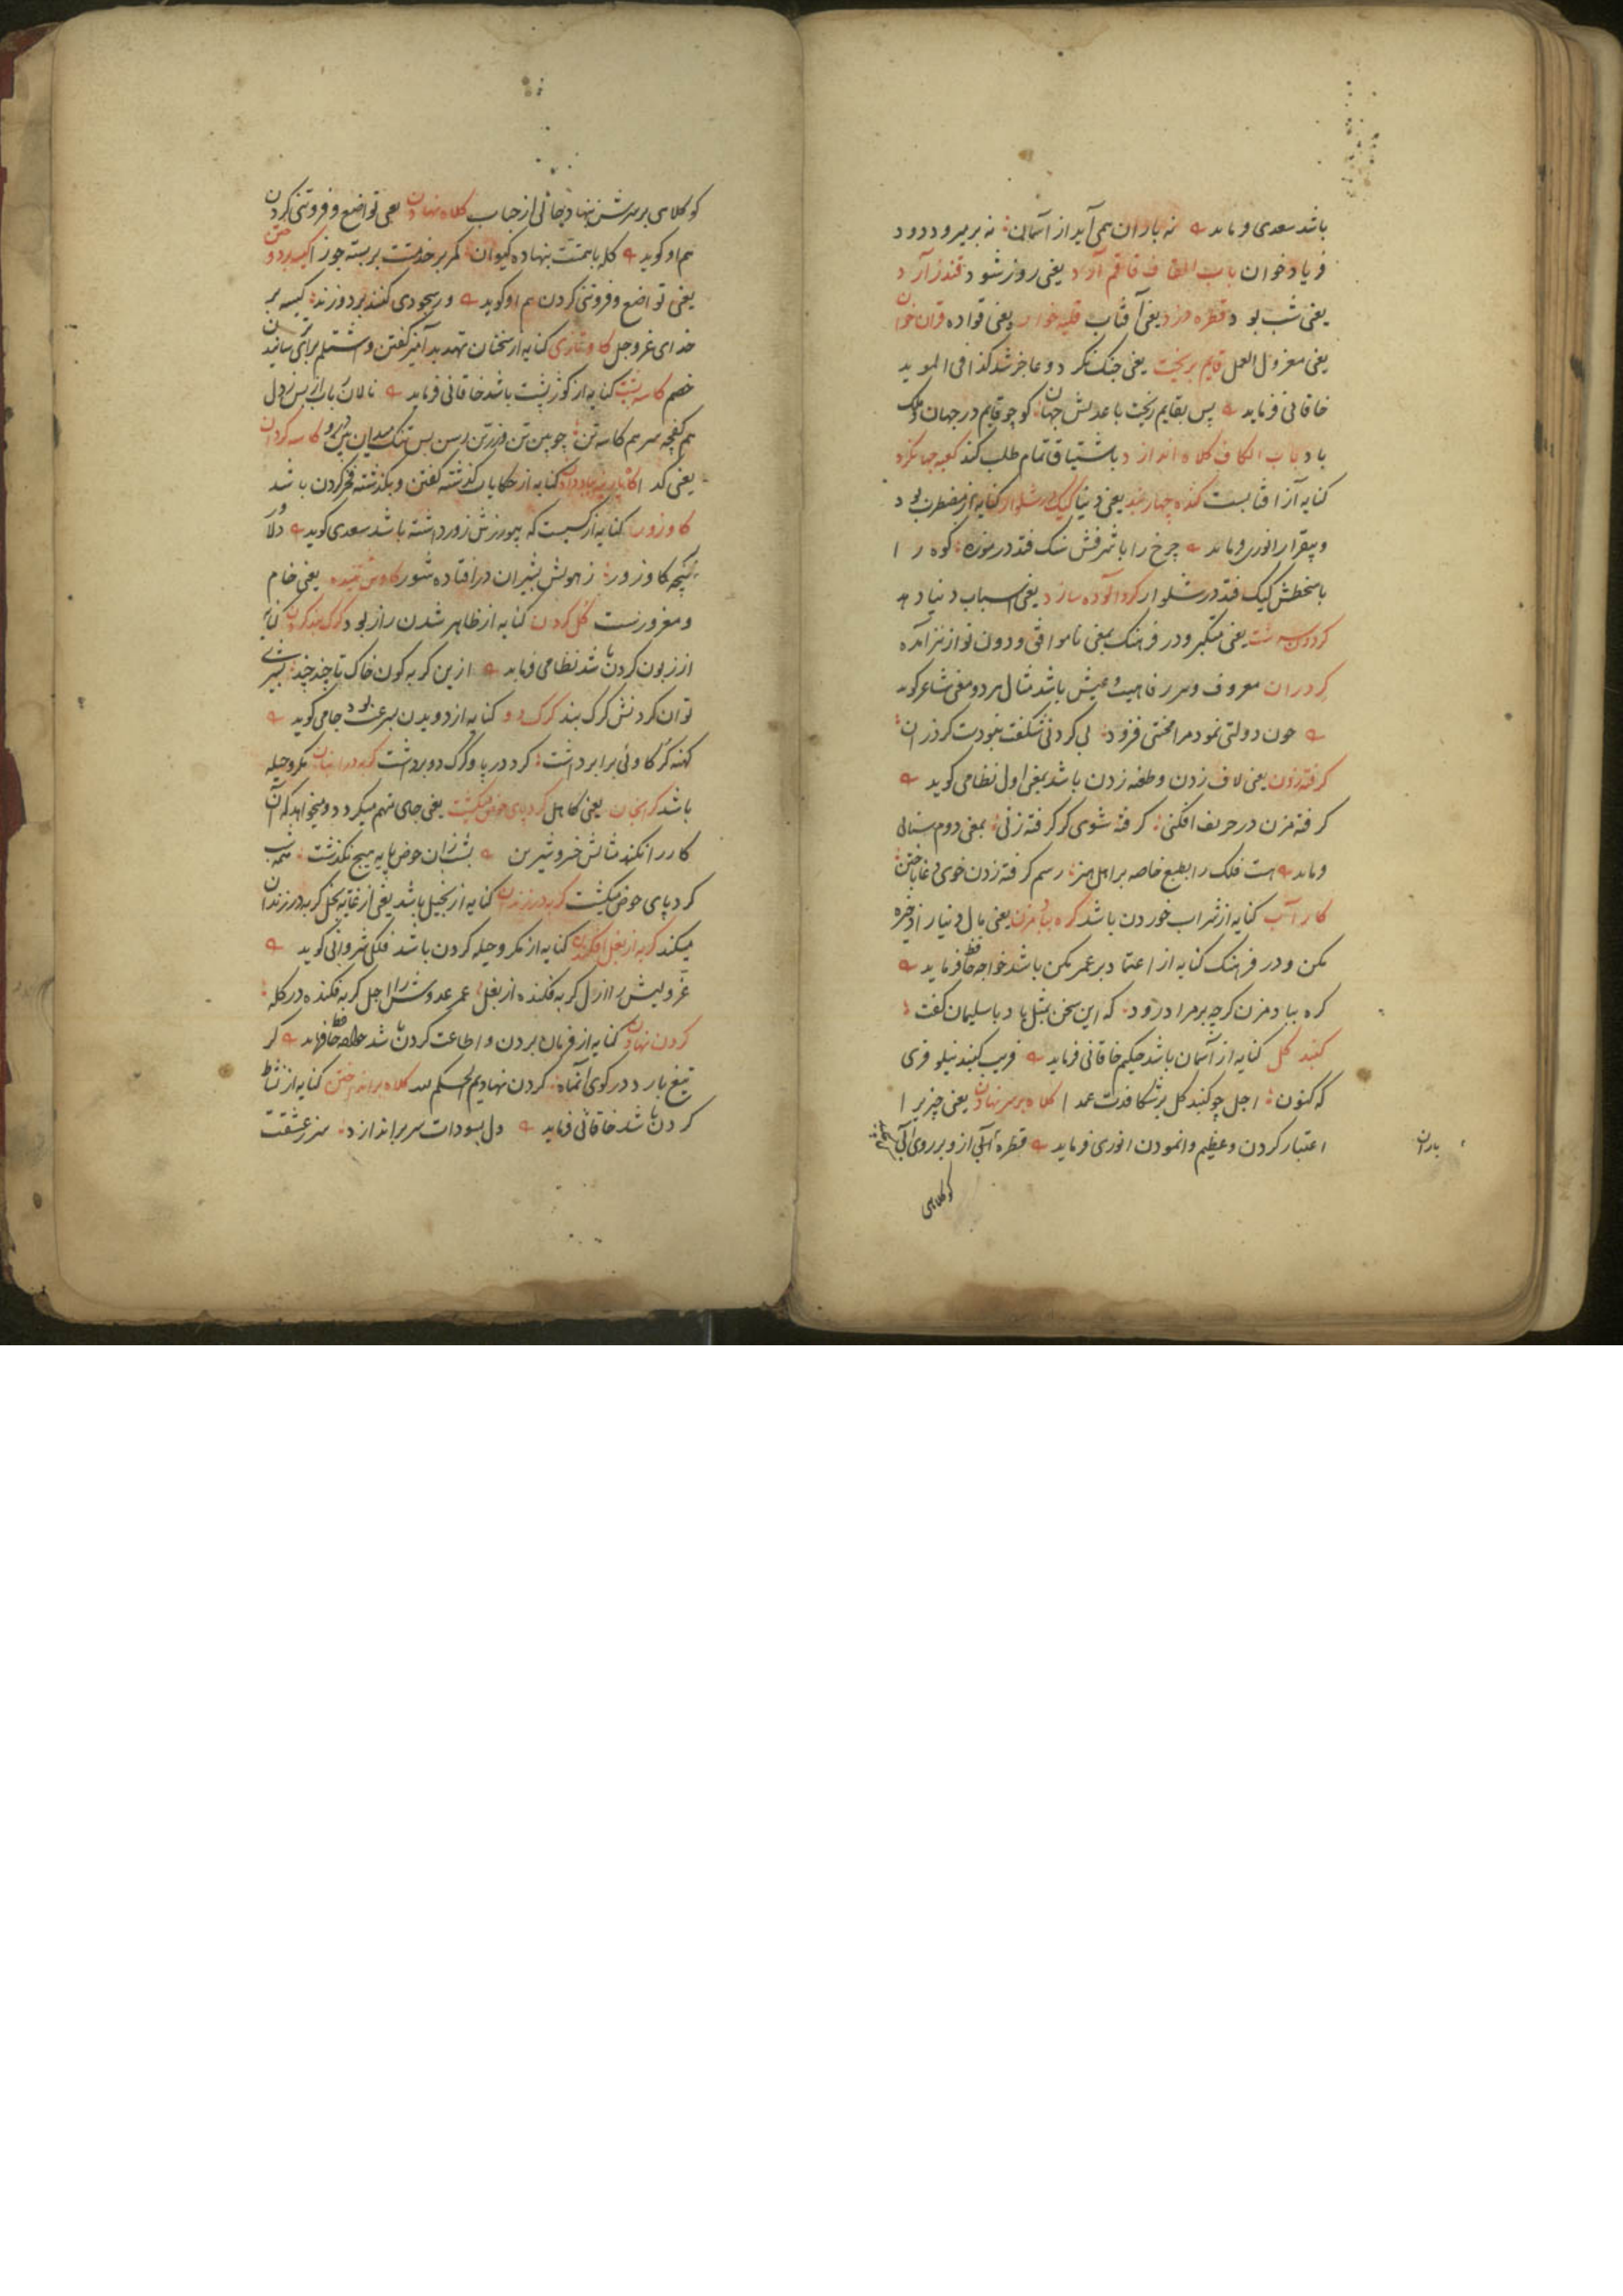 باشد سعدی فرماید نه باران همی آید از آسمان نه بر میرود دود
فریاد خوان باب القاف قاقم آرد یعنی روز شود قندز آرد
یعنی شب بود قطره دزد یعنی آفتاب قلیه خوار یعنی قواده قران خوان
یعنی معزول العمل قایم بریخت یعنی جنک نکرد و عاجز شد کذا فی الموید
خاقانی فرماید پس بقایم ریخت با عدلش جهان کو چو قایم در جهان ملک
باد باب الکاف کلاه اندازد باشتیاق تمام طلب کند کعبه جهانگرد
کنایه از آفتابست کنده چهار بند یعنی دنیا کیک در شلوار کنایه از مضطرب بود
و بیقرار انوری فرماید چرخ را با شرفش سنک فتد در موزه کوه را
با سخطش کیک فتد در شلوار کرد آلوده سازد یعنی اسباب دنیا دهد
یعنی متکبر و در فرهنک بمعنی ناموافق و دون نواز نیز آمده
کردران معروف و مرفاهیت و عیش باشد مثال هر دو معنی شاعر کوید
چون دولتی نمود مرا محنتی فزود بی کردنی شکفت نبودست کردران
کرفته زدن یعنی لاف زدن و طعنه زدن باشد بمعنی اول نظامی کوید
کرفته مزن در حریف افکنی کرفته شوی کر کرفته زنی بمعنی دوم سنائی
فرماید هست فلک را بطبع خاصه بر اهل هنر رسم کرفته زدن خوی دغا باختن
کار آب کنایه از شراب خوردن باشد کره بباد مزن یعنی مال دنیا را ذخیره
مکن و در فرهنک کنایه از اعتماد بر عمر مکن باشد خواجه حافظ فرماید
کره بباد مزن کرچه بر مراد رود که این سخن بمثل باد با سلیمان کفت
کنبد کل کنایه از آسمان باشد حکیم خاقانی فرماید فریب کنبد نیلوفری
که کنون اجل چو کنبد کل بر شکافدت عمدا کلاه بر سر نهادن یعنی چیز را
اعتبار کردن و عظیم وانمودن انوری فرماید قطره آبی از و بر روی آبی
باران
کو کلاهی
کو کلاهی بر سرش ننهاد حالی از حباب کلاه نهادن یعنی تواضع و فروتنی کردن
هم او کوید کله با همتت بنهاده کیوان کمر بر خدمتت بربسته جوزا کیسه بردوختن
یعنی تواضع و فروتنی کردن هم او کوید ور سجودی کنند بردوزند کیسه بر
خدای عز و جل کاو تازی کنایه از سخنان تهدید آمیز کفتن و اشتلم برای سانیدن
خصم کاسه پشت کنایه از کوز پشت باشد خاقانی فرماید
هم کفچه سر هم کاسه تن چوبین تن زرین رسن بس تنک میدان بین درو کاسه کردان
یعنی کدا کاه پارینه بباد دادن کنایه از حکایات کذشته کفتن و بکذشته فخر کردن باشد
کاو زور کنایه از کسیست که بیورزش زور داشته باشد سعدی کوید دلاور
پنجه کاو زور ز هولش بشیران درافتاده شور یعنی خام
و مغرورست کل کردن کنایه از ظاهر شدن راز بود کرک بند کردن کنایه
از زبون کردن باشد نظامی فرماید ازین کربه کون خاک تا چند چند بشیری
توان کردنش کرک بند کرک دو کنایه از دویدن بسرعت بود جامی کوید
کهنه کاوئی برابر داشت کرد در پا و کرک دو برداشت مکر و حیله
باشد کرانجان یعنی کاهل کرد پای حوض میکشت یعنی جای متهم میکردد و میخواهد که آن
کار را نکند مثالش خسرو شیرین بشب زان حوض پایه هیچ نکذشت همه شب
کرد پای حوض میکشت کربه در زندان کنایه از بخیل باشد یعنی از غایه بخل کربه در زندان
میکند کربه از بغل افکندن کنایه از مکر و حیله کردن باشد فلکی شروانی کوید
عز ولیش را ازل کربه فکنده از بغل عمر عدوش را اجل کربه فکنده در کله
کردن نهادن کنایه از فرمان بردن و اطاعت کردن باشد خواجه حافظ فرماید کر
تیغ بارد در کوی آنماه کردن نهادیم الحکم لله کلاه برانداختن کنایه از نشاط
کردن باشد خاقانی فرماید دل بسودات سر براندازد سر ز عشقت